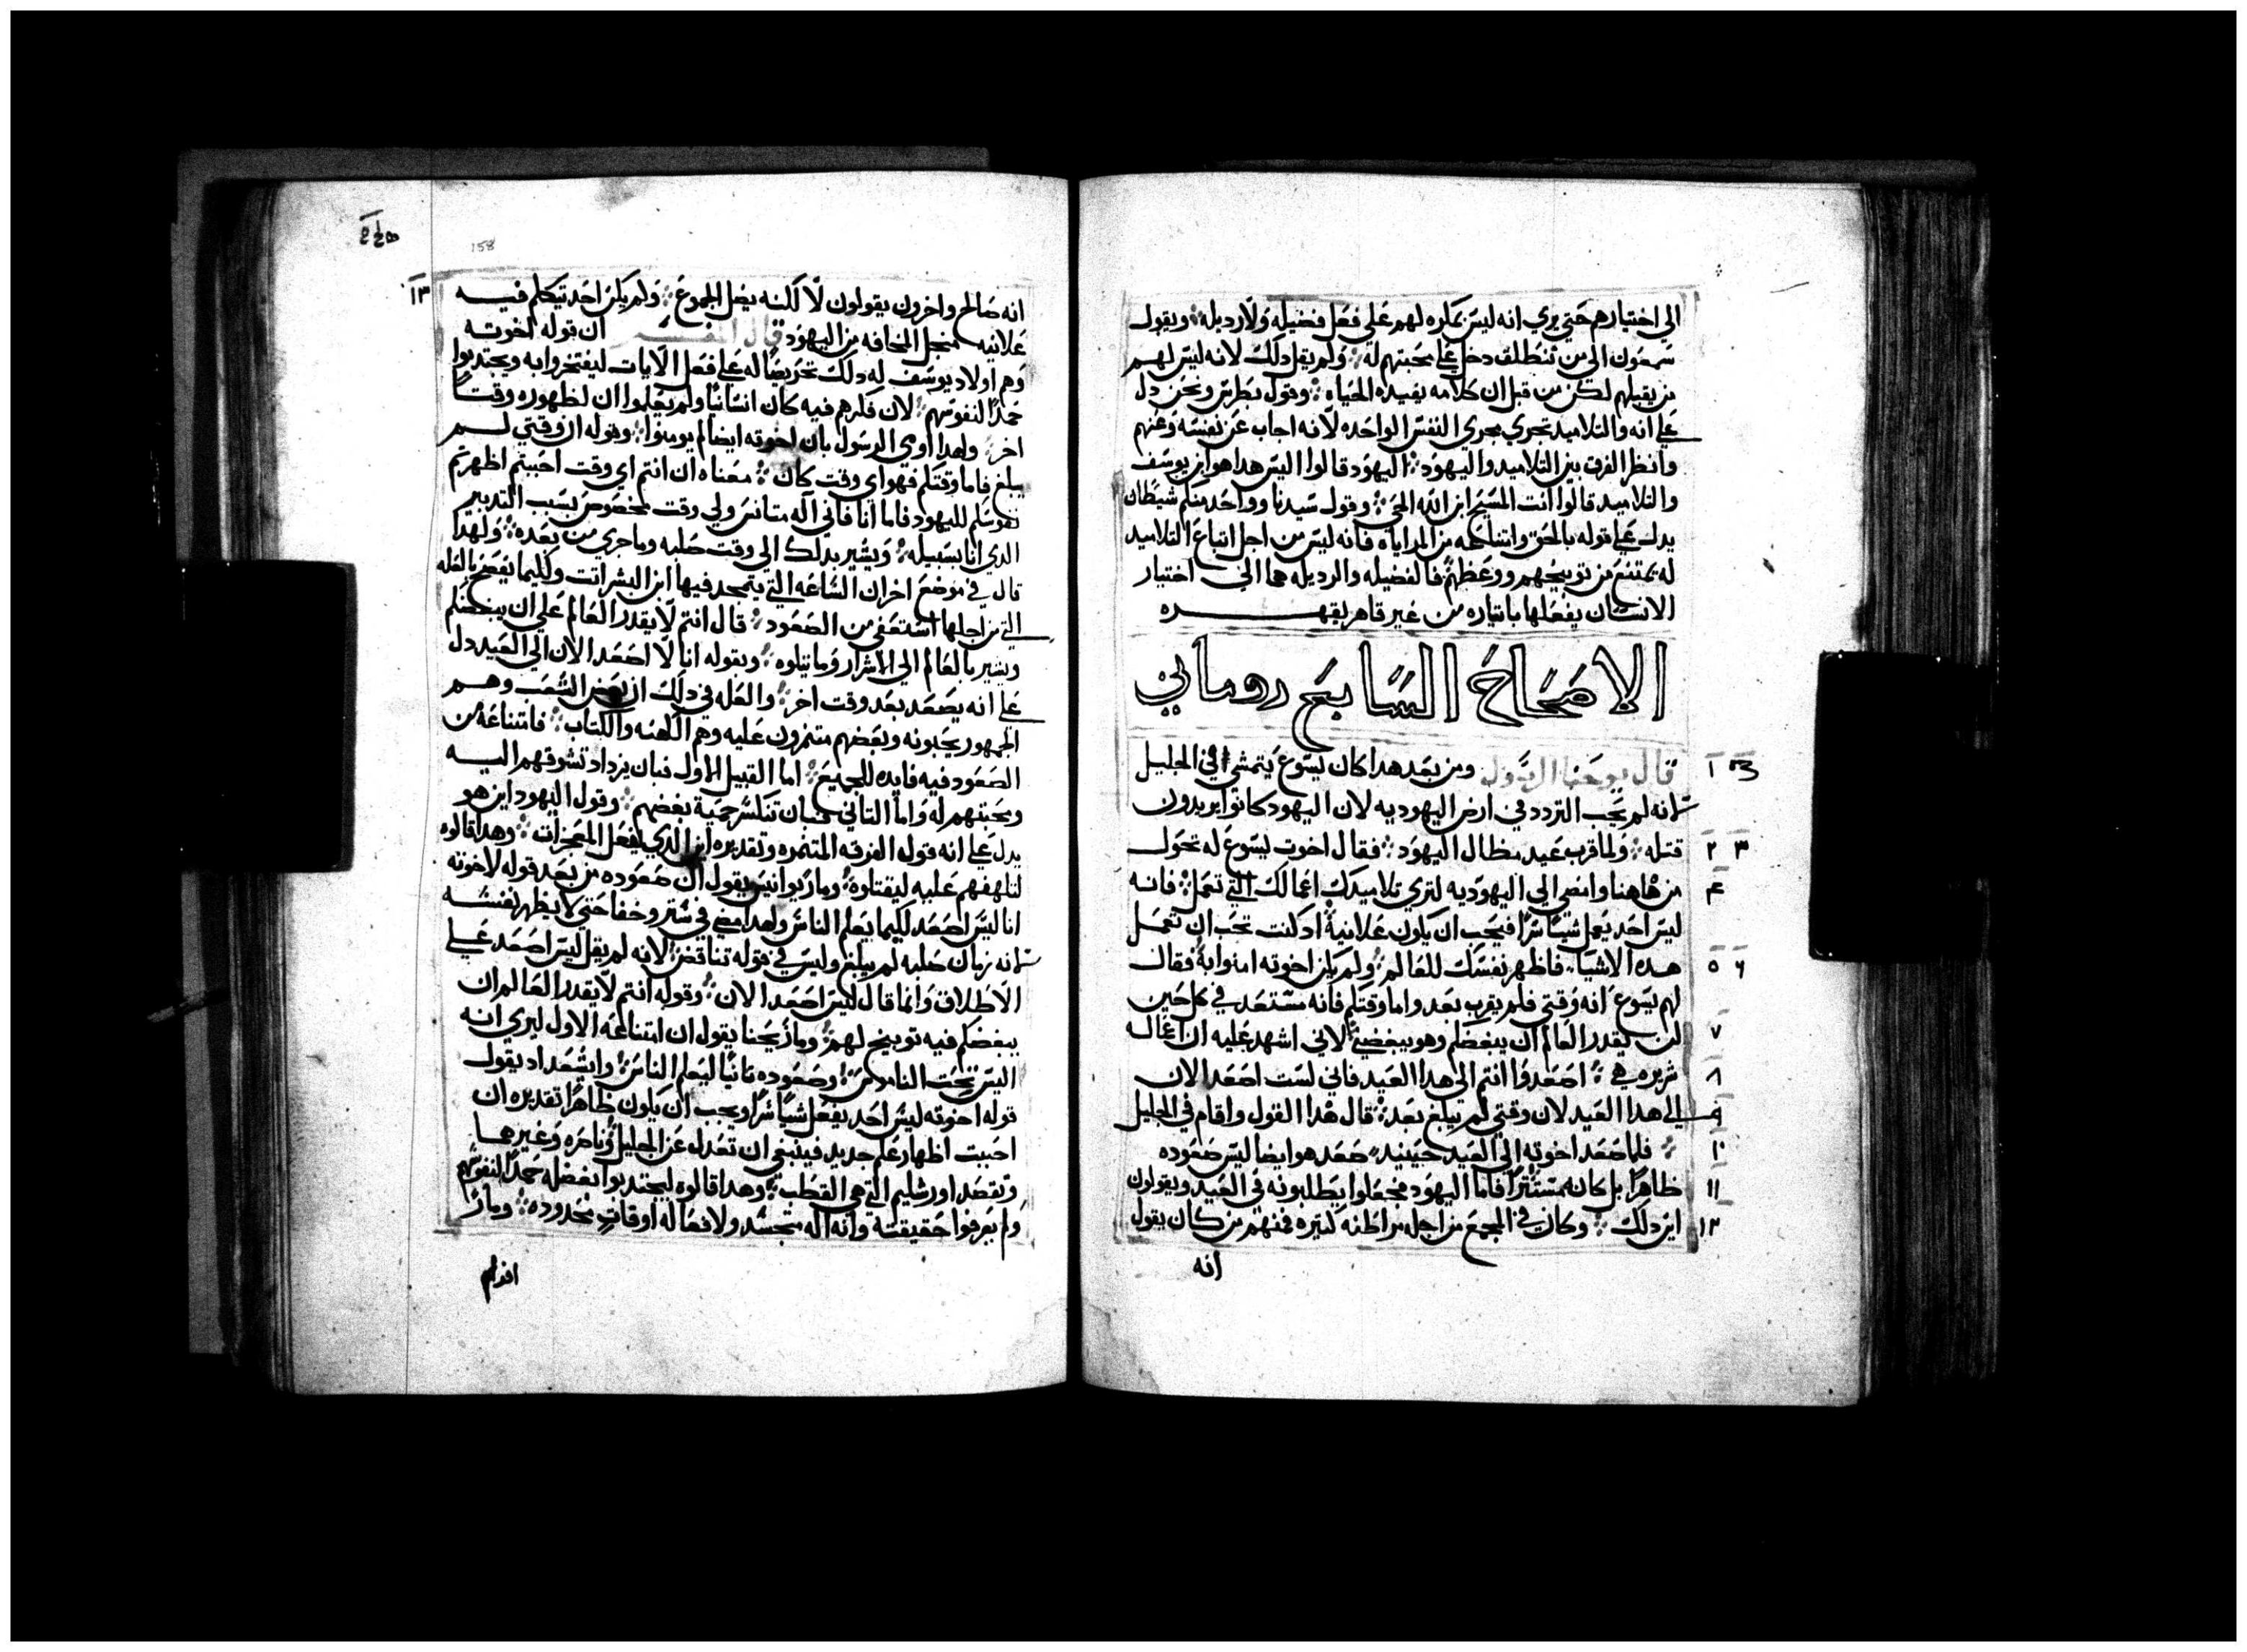 الي اختيارهم حتي يري انه ليس بمكره لهم علي فعل فضيله ولا رديله ويقول
سمعون الي من ننطلق دخل علي محبتهم له ولم يقل دلك لانه ليس لهم
من يقبلهم لكن من قبل ان كلامه يفيده الحياه وقول بطرس ونحن دل
علي انه والتلاميد تجري مجري النفس الواحده لانه اجاب عن نفسه وعنهم
وانظر الفرق بين التلاميد واليهود اليهود قالوا اليس هدا هو ابن يوسف
والتلاميد قالوا انت المسيح ابن الله الحي وقول سيدنا وواحد منكم شيطان
يدل علي قوله بالحق وانتناعه من المراياه فانه ليس من اجل اتباع التلاميد
له يمتنع من توبيخهم ووعظهم فالفضيله والرديله هما الي اختيار
الانسان يفعلها باتياره من غير قاهر يقهره
الاصحاح السابع روماني
١ قال يوحنا الرسول ومن بعد هدا كان يسوع يتمشي في الجليل
لانه لم يحب التردد في ارض اليهوديه لان اليهود كانوا يريدون
٢ ٣ قتله ولما قرب عيد مظال اليهود فقال اخوت يسوع له تحول
٤ من هاهنا وامضي الي اليهوديه لتري تلاميدك اعمالك التي تعمل فانه
ليس احد يعمل شيا سرا فيحب ان يكون علانية اد كنت تحب ان تعمل
٥ ٦ هده الاشيا فاظهر نفسك للعالم ولم يكن اخوته امنوا به فقال
لهم يسوع انه وقتي فلم يقرب بعد واما وقتكم فانه مستعد في كل حين
٧ لن يقدر العالم ان يبغضكم وهو يبغضني لاني اشهد عليه ان اعماله
٨ شريره هي اصعدوا انتم الي هدا العيد فاني لست اصعد الان
٩ الي هدا العيد لان وقتي لم يبلغ بعد قال هدا القول واقام في الجليل
١٠ فلما صعد اخوته الي العيد حينيد صعد هو ايضا ليس صعوده
١١ ظاهرا بل كانه مستترا فاما اليهود فجعلوا يطلبونه في العيد ويقولون
١٢ اين دلك وكان في الجمع من اجله مراطنه كتيره فمنهم من كان يقول
انه
158
١٣ انه صالح واخرون يقولون لا لكنه يضل الجموع ولم يكن احد تيكلم فيه
علانيه منجل المخافه من اليهود قال المفسر ان قوله اخوته
وهم اولاد يوسف له دلك تحريضا له علي فعل الايات ليفتخروا به ويجتدبوا
حمدا لنفوسهم لان فكرهم فيه كان انسانيا ولم يعلموا ان لظهوره وقتا
اخر ولهدا اوري الرسول بان اخوته ايضا لم يومنوا وقوله ان وقتي لم
يبلغ فاما وقتكم فهو اي وقت كان معناه ان انتم اي وقت احببتم اظهرتم
نفوسكم لليهود فاما انا فاني اله متانس ولي وقت مخصوص بسبب التدبير
الدي انا بسبيله ويشير بدلك الي وقت صلبه وماجري من بعده ولهدا
قال في موضع اخر ان الساعه التي يتمجد فيها ابن البشر اتت وكيما يفصح بالعله
التي من اجلها استعفي من الصعود قال انتم لا يقدر العالم علي ان يبغضكم
ويشير بالعالم الي الاشرار وما يتلوه وبقوله انا لا اصعد الان الي العيد دل
علي انه يصعد بعد وقت اخر والعله في دلك ان بعض الشعب وهم
الجمهور يحبونه وبعضهم متنمرون عليه وهم الكهنه والكتاب فامتناعه من
الصعود فيه فايده للجميع اما القبيل الاول فبان يزداد تشوقهم اليه
ومحبتهم له واما التاني فبان تنكسر حمية بغضهم وقول اليهود اين هو
يدل علي انه قول الفرقه المتنمره وتقديره اين الدي يفعل المعجزات وهدا قالوه
لتلهفهم عليه ليقتلوه وماريوانيس يقول ان صعوده من بعد قوله لاخوته
انا ليس اصعد لكيما يعلم الناس ولهدا مضي في ستر وخفا حتي لا يظهر نفسه
لانه زمان صلبه لم يبلغ وليس في قوله تناقض لانه لم يقل ليس اصعد علي
الاطلاق وانما قال ليس اصعد الان وقوله انتم لا يقدر العالم ان
يبغضكم فيه توبيخ لهم ومار يحنا يقول ان امتناعه الاول ليري انه
ليس تحت الناموس وصعوده تانيا ليعلم الناس وايشعداد يقول
قوله اخوته ليس احد يفعل شيا سرا ويحب ان يكون ظاهرا تقديره ان
احببت اظهار علم جديد فينبغي ان تعدل عن الجليل وناصره وغيرها
وتقصد اورشليم التي هي القطب وهدا قالوه ليجتدبوا بفضله حمدا لنفوسهم
ولم يعرفوا حقيقته وانه اله متجسد ولافعاله اوقات محدوده ومار
افرام